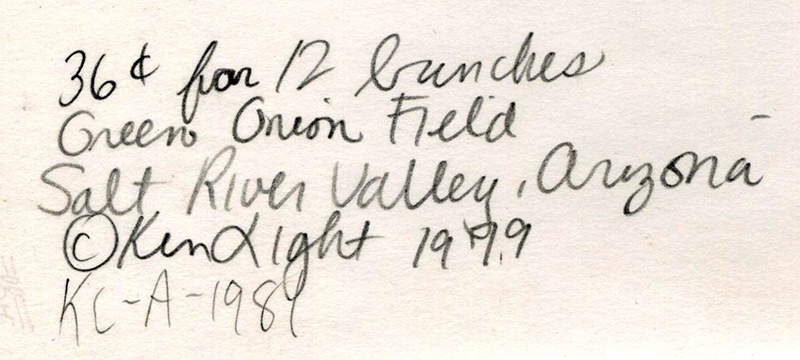 36¢ for 12 bunches
Green Onion Field
Salt River Valley, Arizona
©Ken Light 1979
KL-A-1981